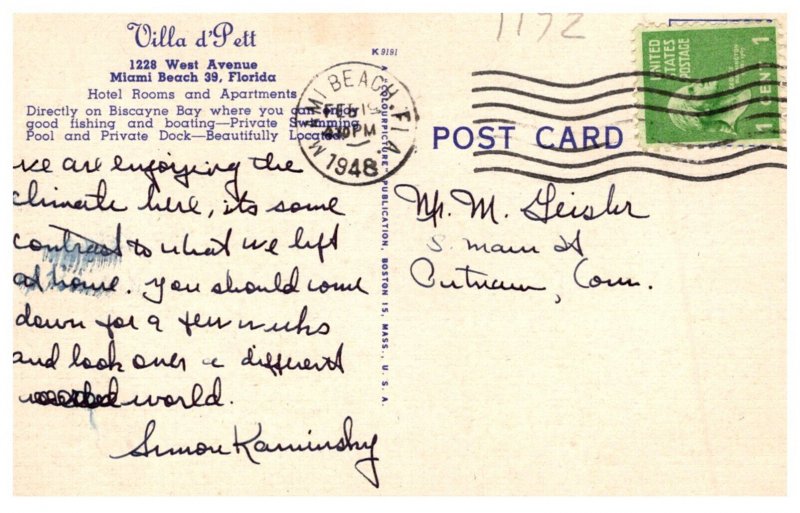 Villa d'Pett
1228 West Avenue
Miami Beach 39, Florida
Hotel Rooms and Apartments
Directly on Biscayne Bay where you can enjoy
good fishing and boating—Private Swimming
Pool and Private Dock—Beautifully Located
we are enjoying the
climate here, its some
contrast to what we left
at home. You should come
down for a few weeks
and look over a different
world.
Simon Kaminsky
K 9191
A "COLOURPICTURE" PUBLICATION, BOSTON 15, MASS., U. S. A.
MIAMI BEACH, FLA
FEB 19
4:30 PM
1948
1172
UNITED
STATES
POSTAGE
1 CENT 1
POST CARD
Mr. M. Geisler
S. Main St
Putnam, Conn.